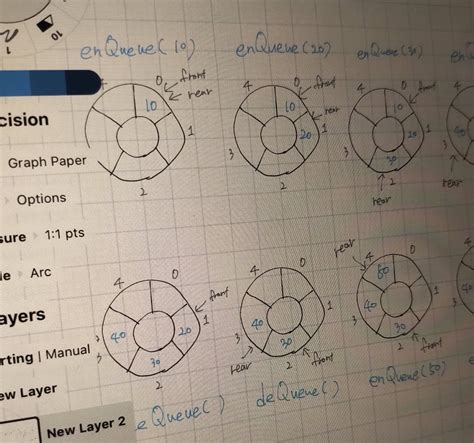 10
1
enQueue(10)
enQueue(20)
enQueue(30)
4
0
front
rear
10
1
2
4
0
front
rear
10
20
1
3
2
4
0
front
10
20
1
30
3
2
rear
cision
Graph Paper
Options
sure 1:1 pts
Arc
ayers
rting | Manual
ew Layer
New Layer 2
4
0
front
20
1
40
30
3
2
4
0
1
40
30
3
rear
2
front
rear
4
0
40
30
1
3
2
front
eQueue()
deQueue()
enQueue(50)